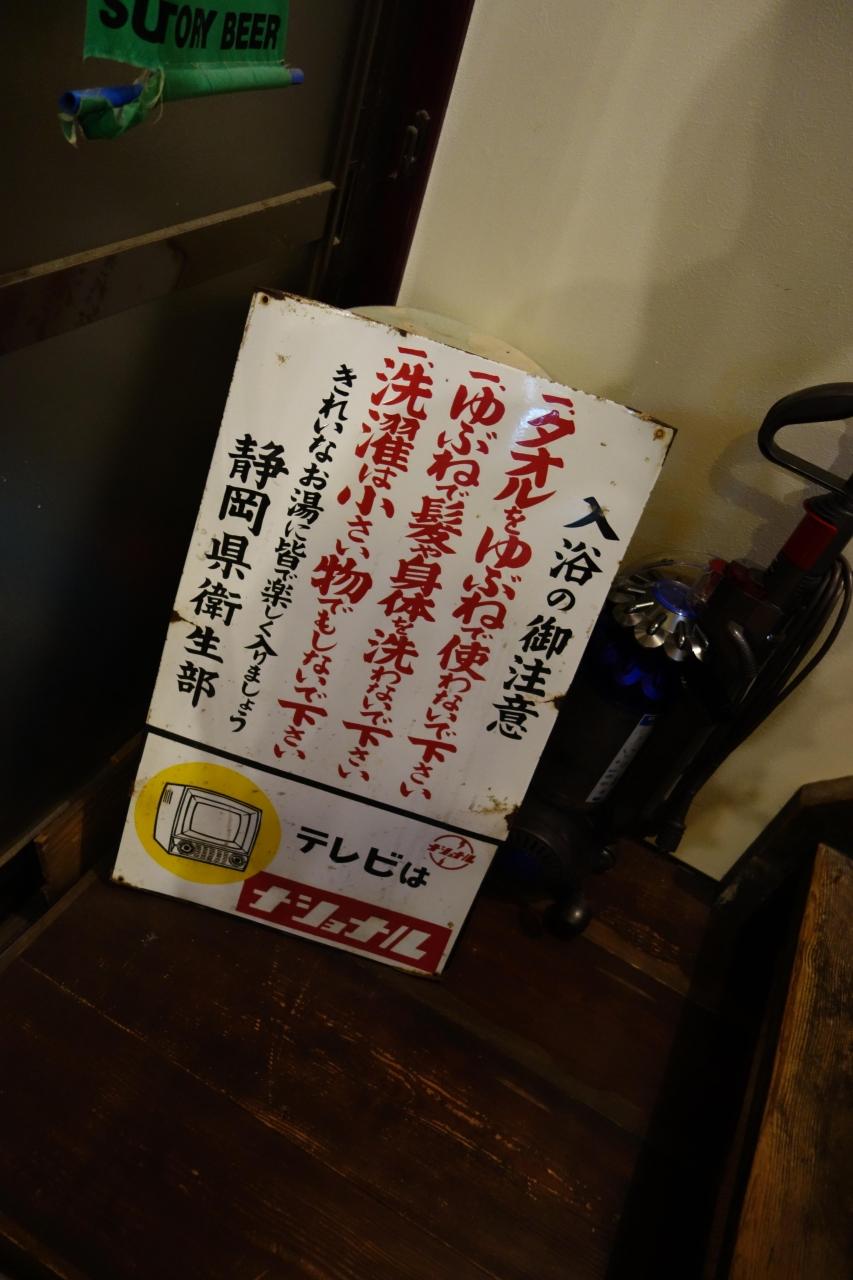 SUTORY BEER
入浴の御注意
一、タオルをゆぶねで使わないで下さい
一、ゆぶねで髪や身体を洗わないで下さい
一、洗濯は小さい物でもしないで下さい
きれいなお湯に皆で楽しく入りましょう
静岡県衛生部
ナショナル
テレビは
ナショナル